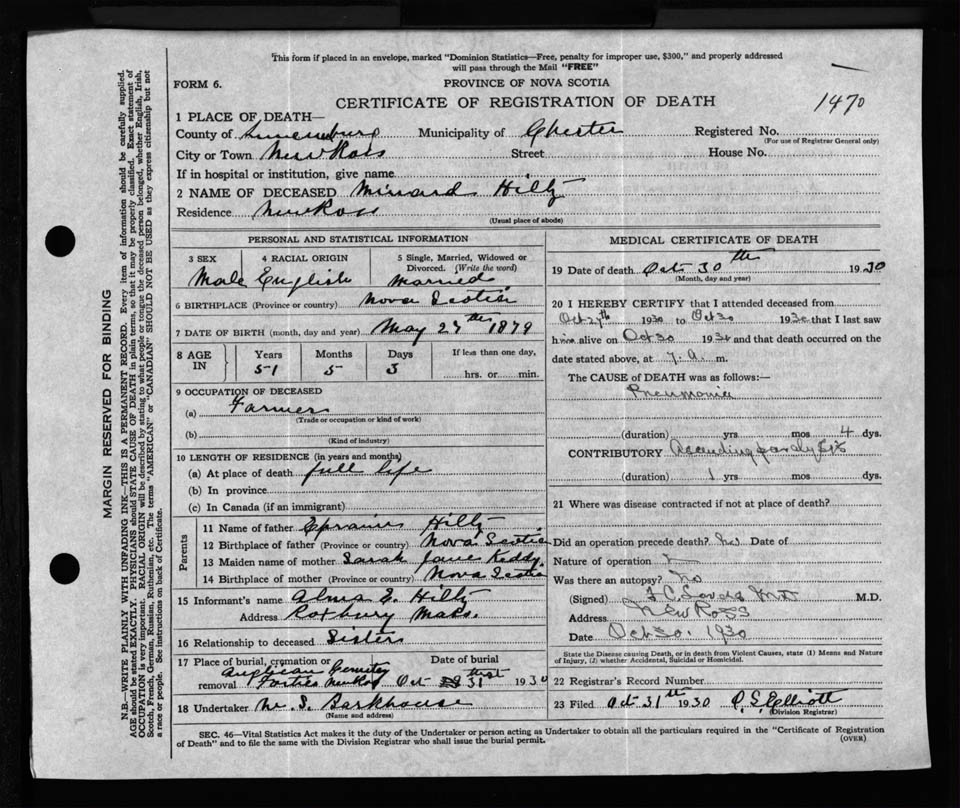 This form if placed in an envelope, marked "Dominion Statistics—Free, penalty for improper use, $300," and properly addressed
will pass through the Mail "FREE"
FORM 6.
PROVINCE OF NOVA SCOTIA
CERTIFICATE OF REGISTRATION OF DEATH
1470
1 PLACE OF DEATH—
County of Lunenburg Municipality of Chester Registered No.
(For use of Registrar General only)
City or Town New Ross Street House No.
If in hospital or institution, give name
2 NAME OF DECEASED Minard Hiltz
Residence New Ross
(Usual place of abode)
PERSONAL AND STATISTICAL INFORMATION
3 SEX 4 RACIAL ORIGIN 5 Single, Married, Widowed or
Divorced. (Write the word)
Male English Married
6 BIRTHPLACE (Province or country) Nova Scotia
7 DATE OF BIRTH (month, day and year) May 27th 1879
8 AGE IN Years Months Days If less than one day,
51 5 3 hrs. or min.
9 OCCUPATION OF DECEASED
(a) Farmer
(Trade or occupation or kind of work)
(b)
(Kind of industry)
10 LENGTH OF RESIDENCE (in years and months)
(a) At place of death full life
(b) In province
(c) In Canada (if an immigrant)
Parents
11 Name of father Ephraim Hiltz
12 Birthplace of father (Province or country) Nova Scotia
13 Maiden name of mother Sarah Jane Keddy
14 Birthplace of mother (Province or country) Nova Scotia
15 Informant's name Alma E. Hiltz
Address Roxbury Mass.
16 Relationship to deceased Sister
17 Place of burial, cremation or removal Date of burial
Anglican Cemetery
Forties New Ross Oct 31st 1930
18 Undertaker M. S. Barkhouse
(Name and address)
MEDICAL CERTIFICATE OF DEATH
19 Date of death Oct 30th 1930
(Month, day and year)
20 I HEREBY CERTIFY that I attended deceased from
Oct 27th 1930 to Oct 30 1930 that I last saw
him alive on Oct 30 1930 and that death occurred on the
date stated above, at 7. a. m.
The CAUSE of DEATH was as follows:—
Pneumonia
(duration) yrs mos 4 dys.
CONTRIBUTORY
(duration) 1 yrs mos dys.
21 Where was disease contracted if not at place of death?
Did an operation precede death? No Date of
Nature of operation
Was there an autopsy? No
(Signed) M.D.
Address New Ross
Date Oct 30. 1930
State the Disease causing Death, or in death from Violent Causes, state (1) Means and Nature
of Injury, (2) whether Accidental, Suicidal or Homicidal.
22 Registrar's Record Number
23 Filed Oct 31th 1930 Elliott
(Division Registrar)
SEC. 46—Vital Statistics Act makes it the duty of the Undertaker or person acting as Undertaker to obtain all the particulars required in the "Certificate of Registration
of Death" and to file the same with the Division Registrar who shall issue the burial permit.
(OVER)
MARGIN RESERVED FOR BINDING
N.B.—WRITE PLAINLY WITH UNFADING INK—THIS IS A PERMANENT RECORD. Every item of information should be carefully supplied.
AGE should be stated EXACTLY. PHYSICIANS should STATE CAUSE OF DEATH in plain terms, so that it may be properly classified. Exact statement of
OCCUPATION is very important. RACIAL ORIGIN will be described by stating to what people or tongue the deceased person belonged, whether English, Irish,
Scotch, French, German, Russian, Ruthenian, etc. The terms "AMERICAN" or "CANADIAN" SHOULD NOT BE USED as they express citizenship but not
a race or people. See instructions on back of Certificate.